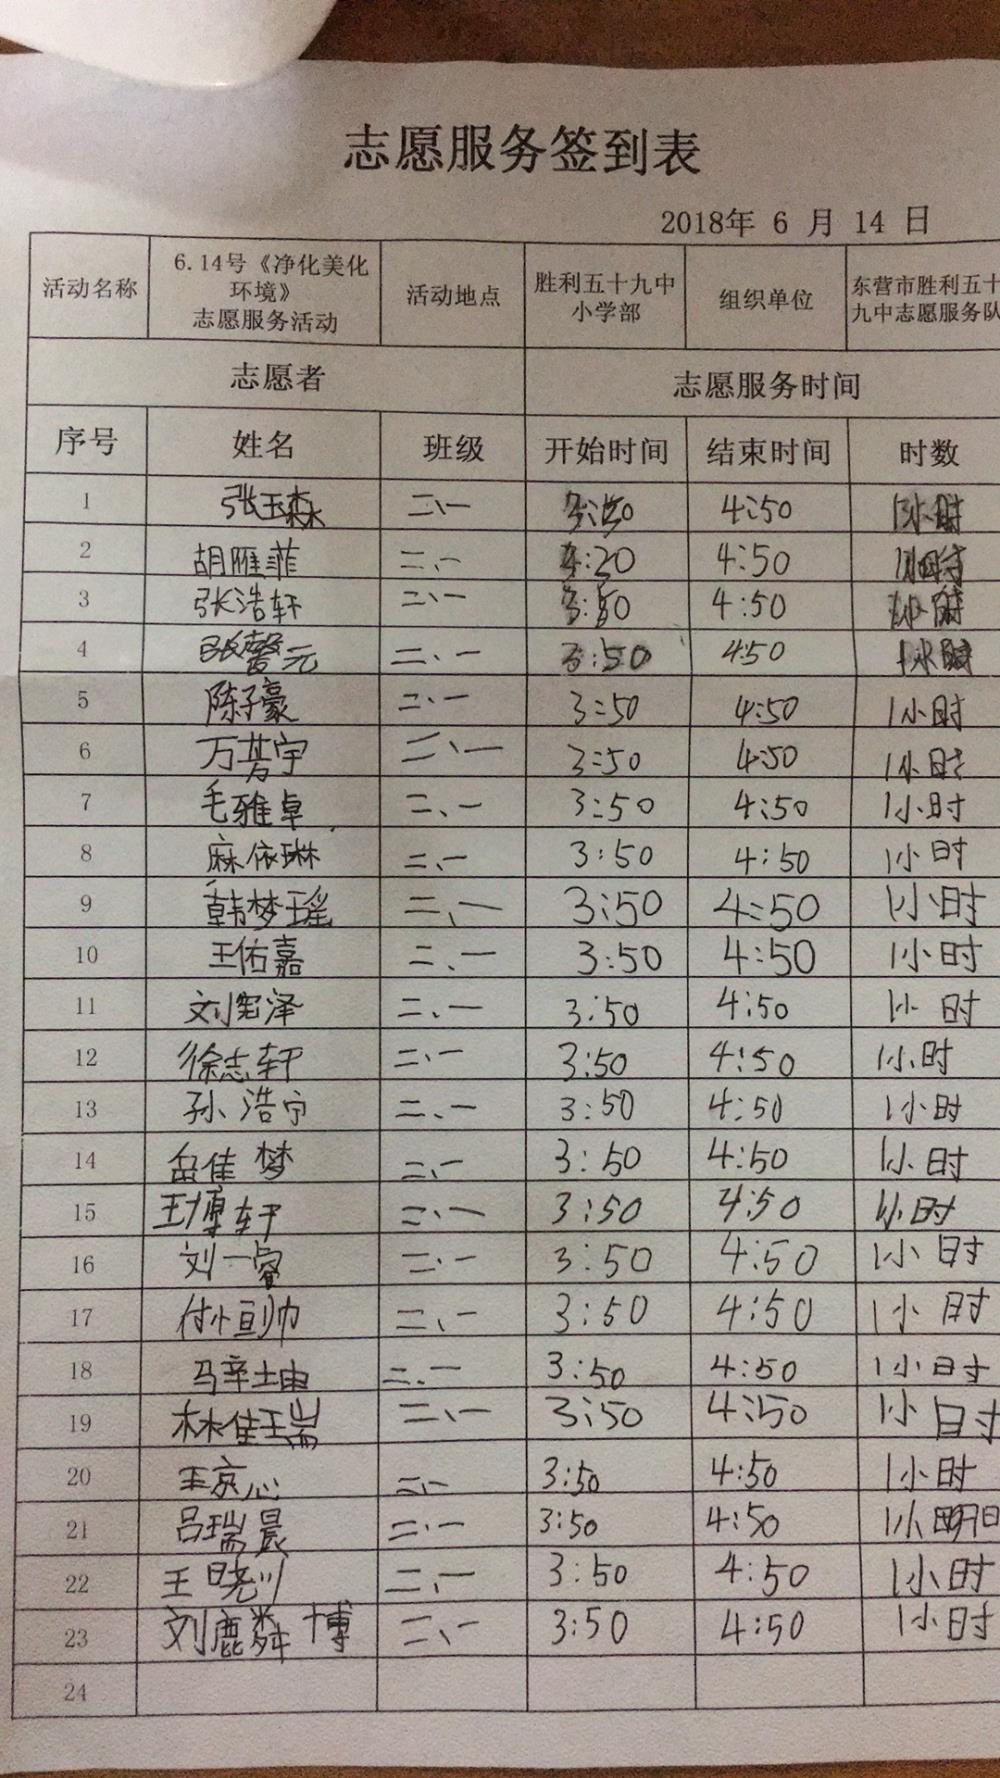 志愿服务签到表
2018年 6 月 14 日
活动名称 6.14号《净化美化环境》志愿服务活动 活动地点 胜利五十九中小学部 组织单位 东营市胜利五十九中志愿服务队
志愿者 志愿服务时间
序号 姓名 班级 开始时间 结束时间 时数
1 张玉森 二、一 3:50 4:50 1小时
2 胡雁菲 二、一 4:50 1小时
3 张浩轩 二、一 3:50 4:50 1小时
4 张馨元 二、一 3:50 4:50 1小时
5 陈子豪 二、一 3:50 4:50 1小时
6 万芳宇 二、一 3:50 4:50 1小时
7 毛雅卓 二、一 3:50 4:50 1小时
8 麻依琳 二、一 3:50 4:50 1小时
9 韩梦瑶 二、一 3:50 4:50 1小时
10 王佑嘉 二、一 3:50 4:50 1小时
11 刘宪泽 二、一 3:50 4:50 1小时
12 徐志轩 二、一 3:50 4:50 1小时
13 孙浩宁 二、一 3:50 4:50 1小时
14 佳梦 二、一 3:50 4:50 1小时
15 王博轩 二、一 3:50 4:50 1小时
16 刘一睿 二、一 3:50 4:50 1小时
17 付恒帅 二、一 3:50 4:50 1小时
18 马辛坤 二、一 3:50 4:50 1小时
19 林佳瑞 二、一 3:50 4:50 1小时
20 王京心 二、一 3:50 4:50 1小时
21 吕瑞晨 二、一 3:50 4:50 1小时
22 王晓川 二、一 3:50 4:50 1小时
23 刘麟博 二、一 3:50 4:50 1小时
24